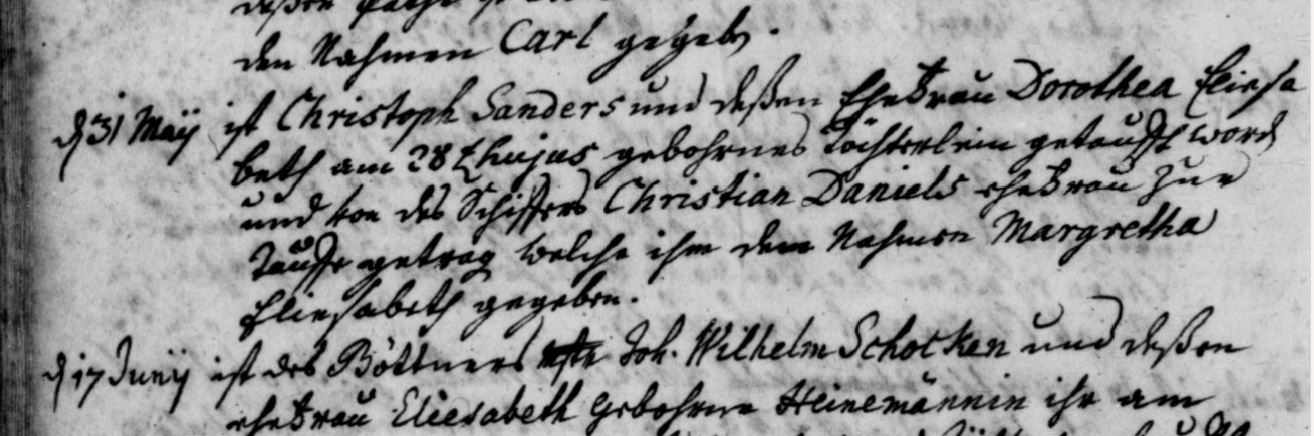 den Nahmen Carl gegeb.
d 31 Maÿ ist Christoph Sanders und deßen Ehefrau Dorothea Eliesa
beth am 28 t hujus gebohrnes Töchterlein getaufft word
und von des Schiffers Christian Daniels ehefrau zur
Tauffe getrag welche ihm den Nahmen Margretha
Eliesabeth gegeben.
d 17 Junÿ ist des Böttners Joh. Wilhelm Schocken und deßen
ehefrau Eliesabeth Gebohrne Heinemännin ihr am